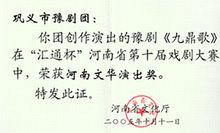 巩义市豫剧团：
你团创作演出的豫剧《九鼎歌》
在“汇通杯”河南省第十届戏剧大赛
中，荣获河南文华演出奖。
特发此证。
河南省文化厅
二〇〇五年十月十一日